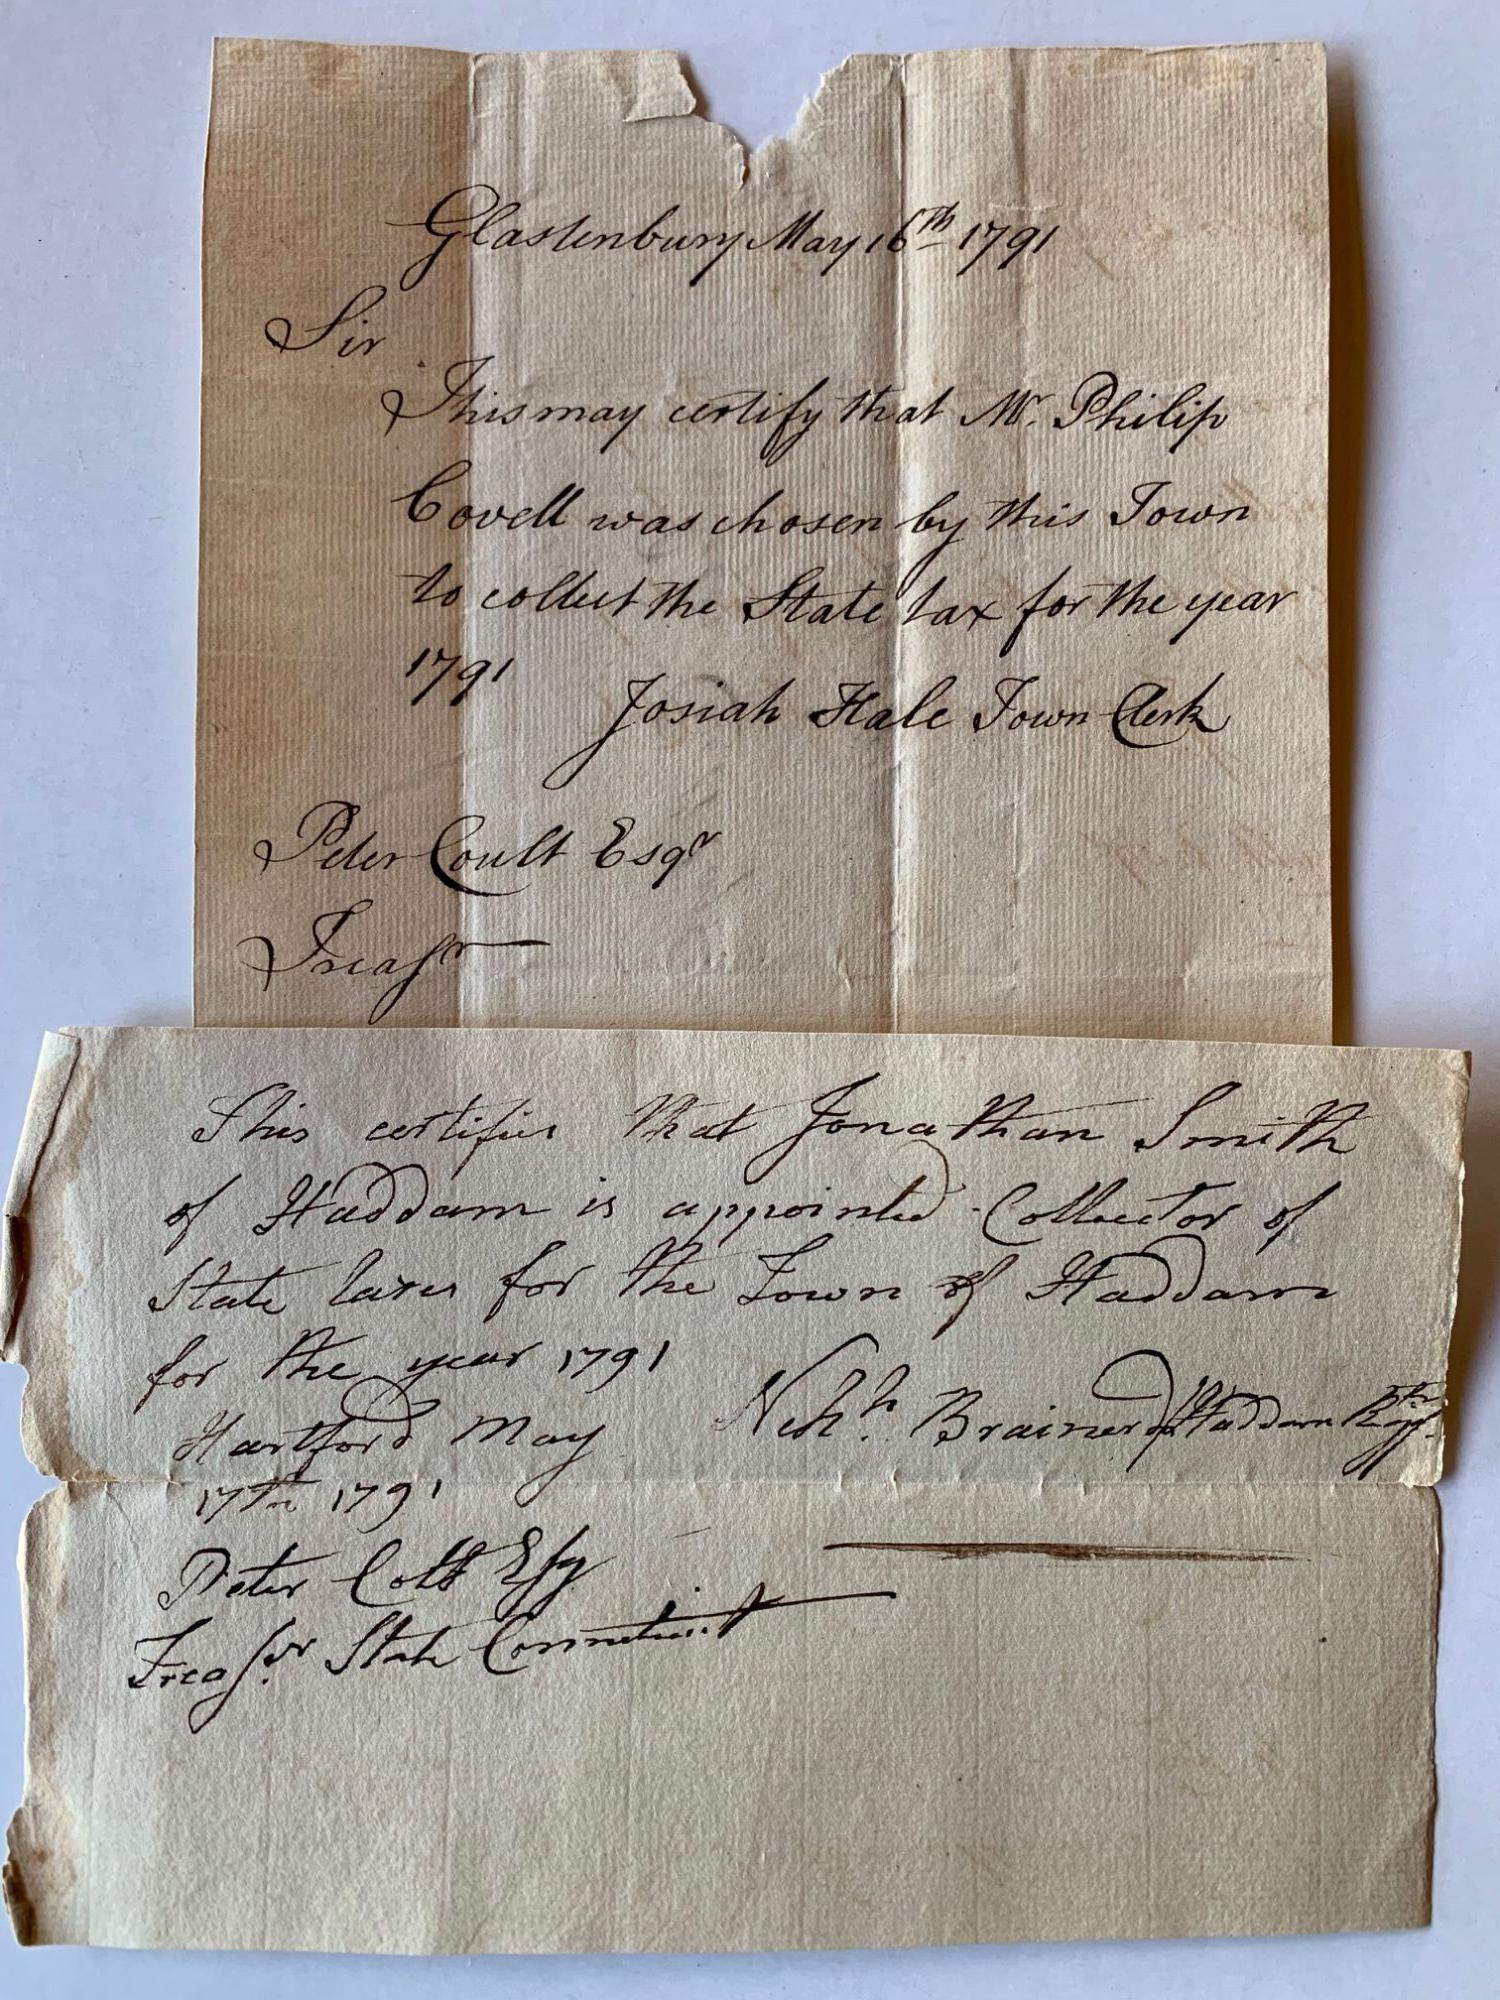 Glastenbury May 16th 1791
Sir
This may certify that Mr. Philip
Covell was chosen by this Town
to collect the State tax for the year
1791
Josiah Hale Town Clerk
Peter Coult Esqr
Treasr
This certifies that Jonathan Smith
of Haddam is appointed Collector of
State taxes for the Town of Haddam
for the year 1791
Nehh. Brainerd Haddam
Hartford May
17th 1791
Peter Colt Esq
Treasr. State Connecticut